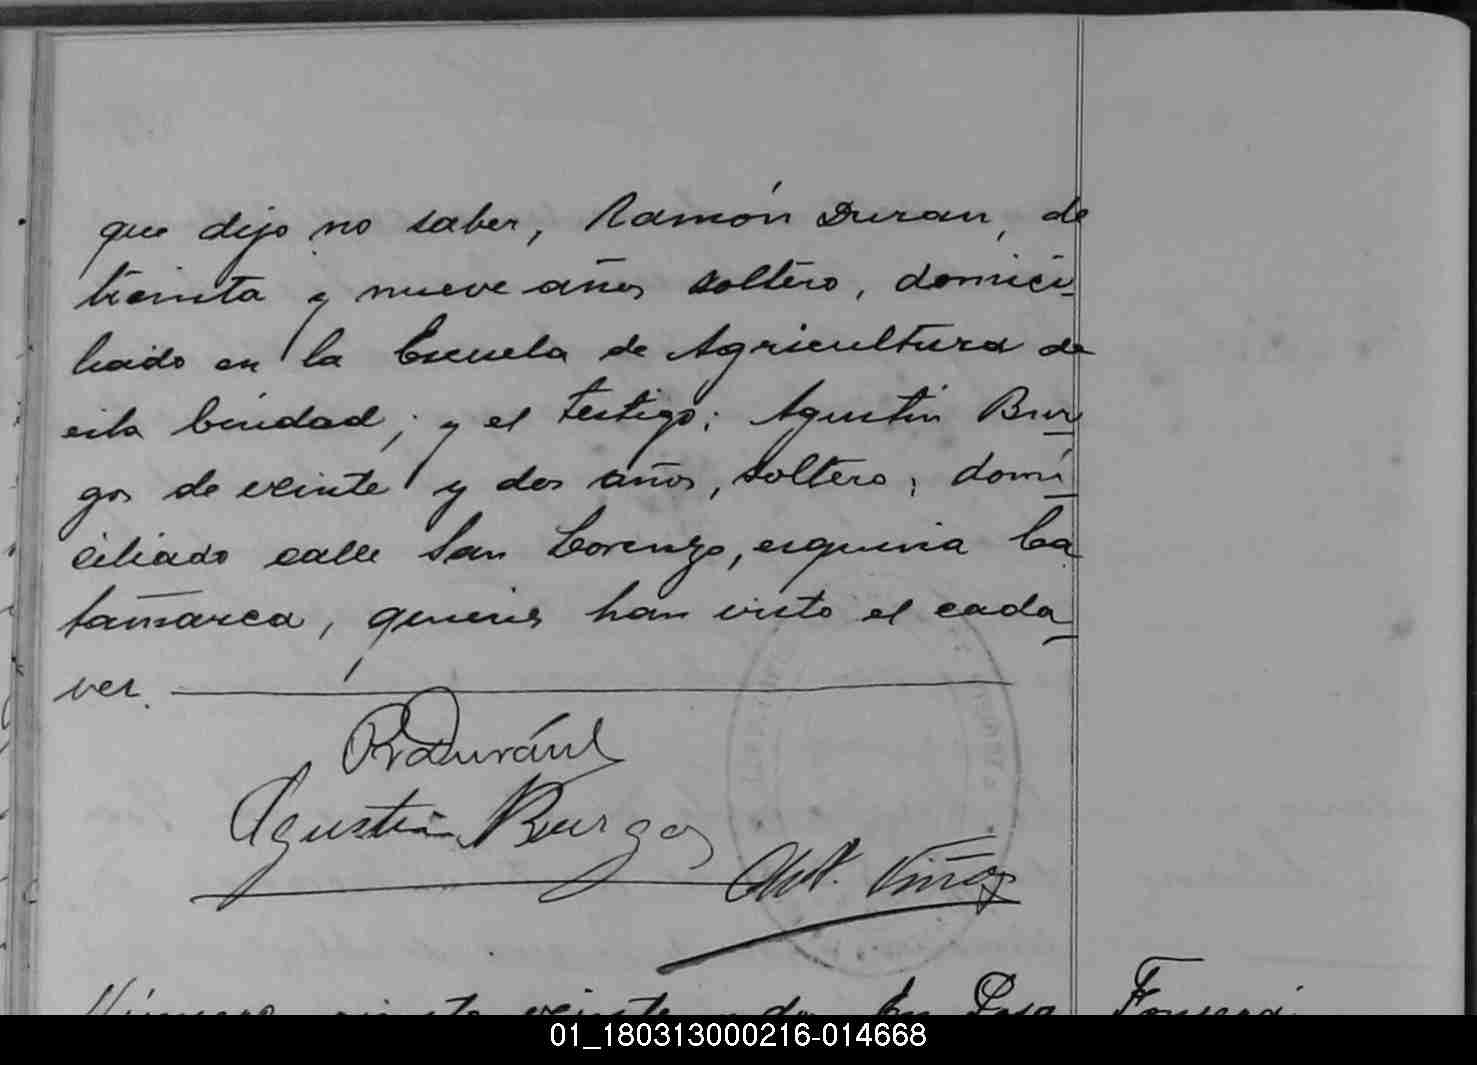 que dijo no saber, Ramón Duran, de
treinta y nueve años soltero, domici
liado en la Escuela de Agricultura de
esta Ciudad; y el testigo: Agustin Bur
gos de veinte y dos años, soltero, domi
ciliado calle San Lorenzo, esquina Ca
tamarca, quienes han visto el cada
ver.
R Durán
Agustin Burgos
Número ciento veinte y dos En Fonseca
01_180313000216-014668